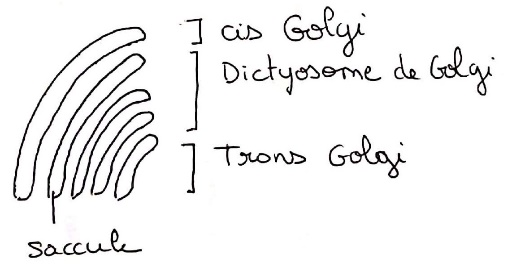 cis Golgi
Dictyosome de Golgi
Trans Golgi
saccule